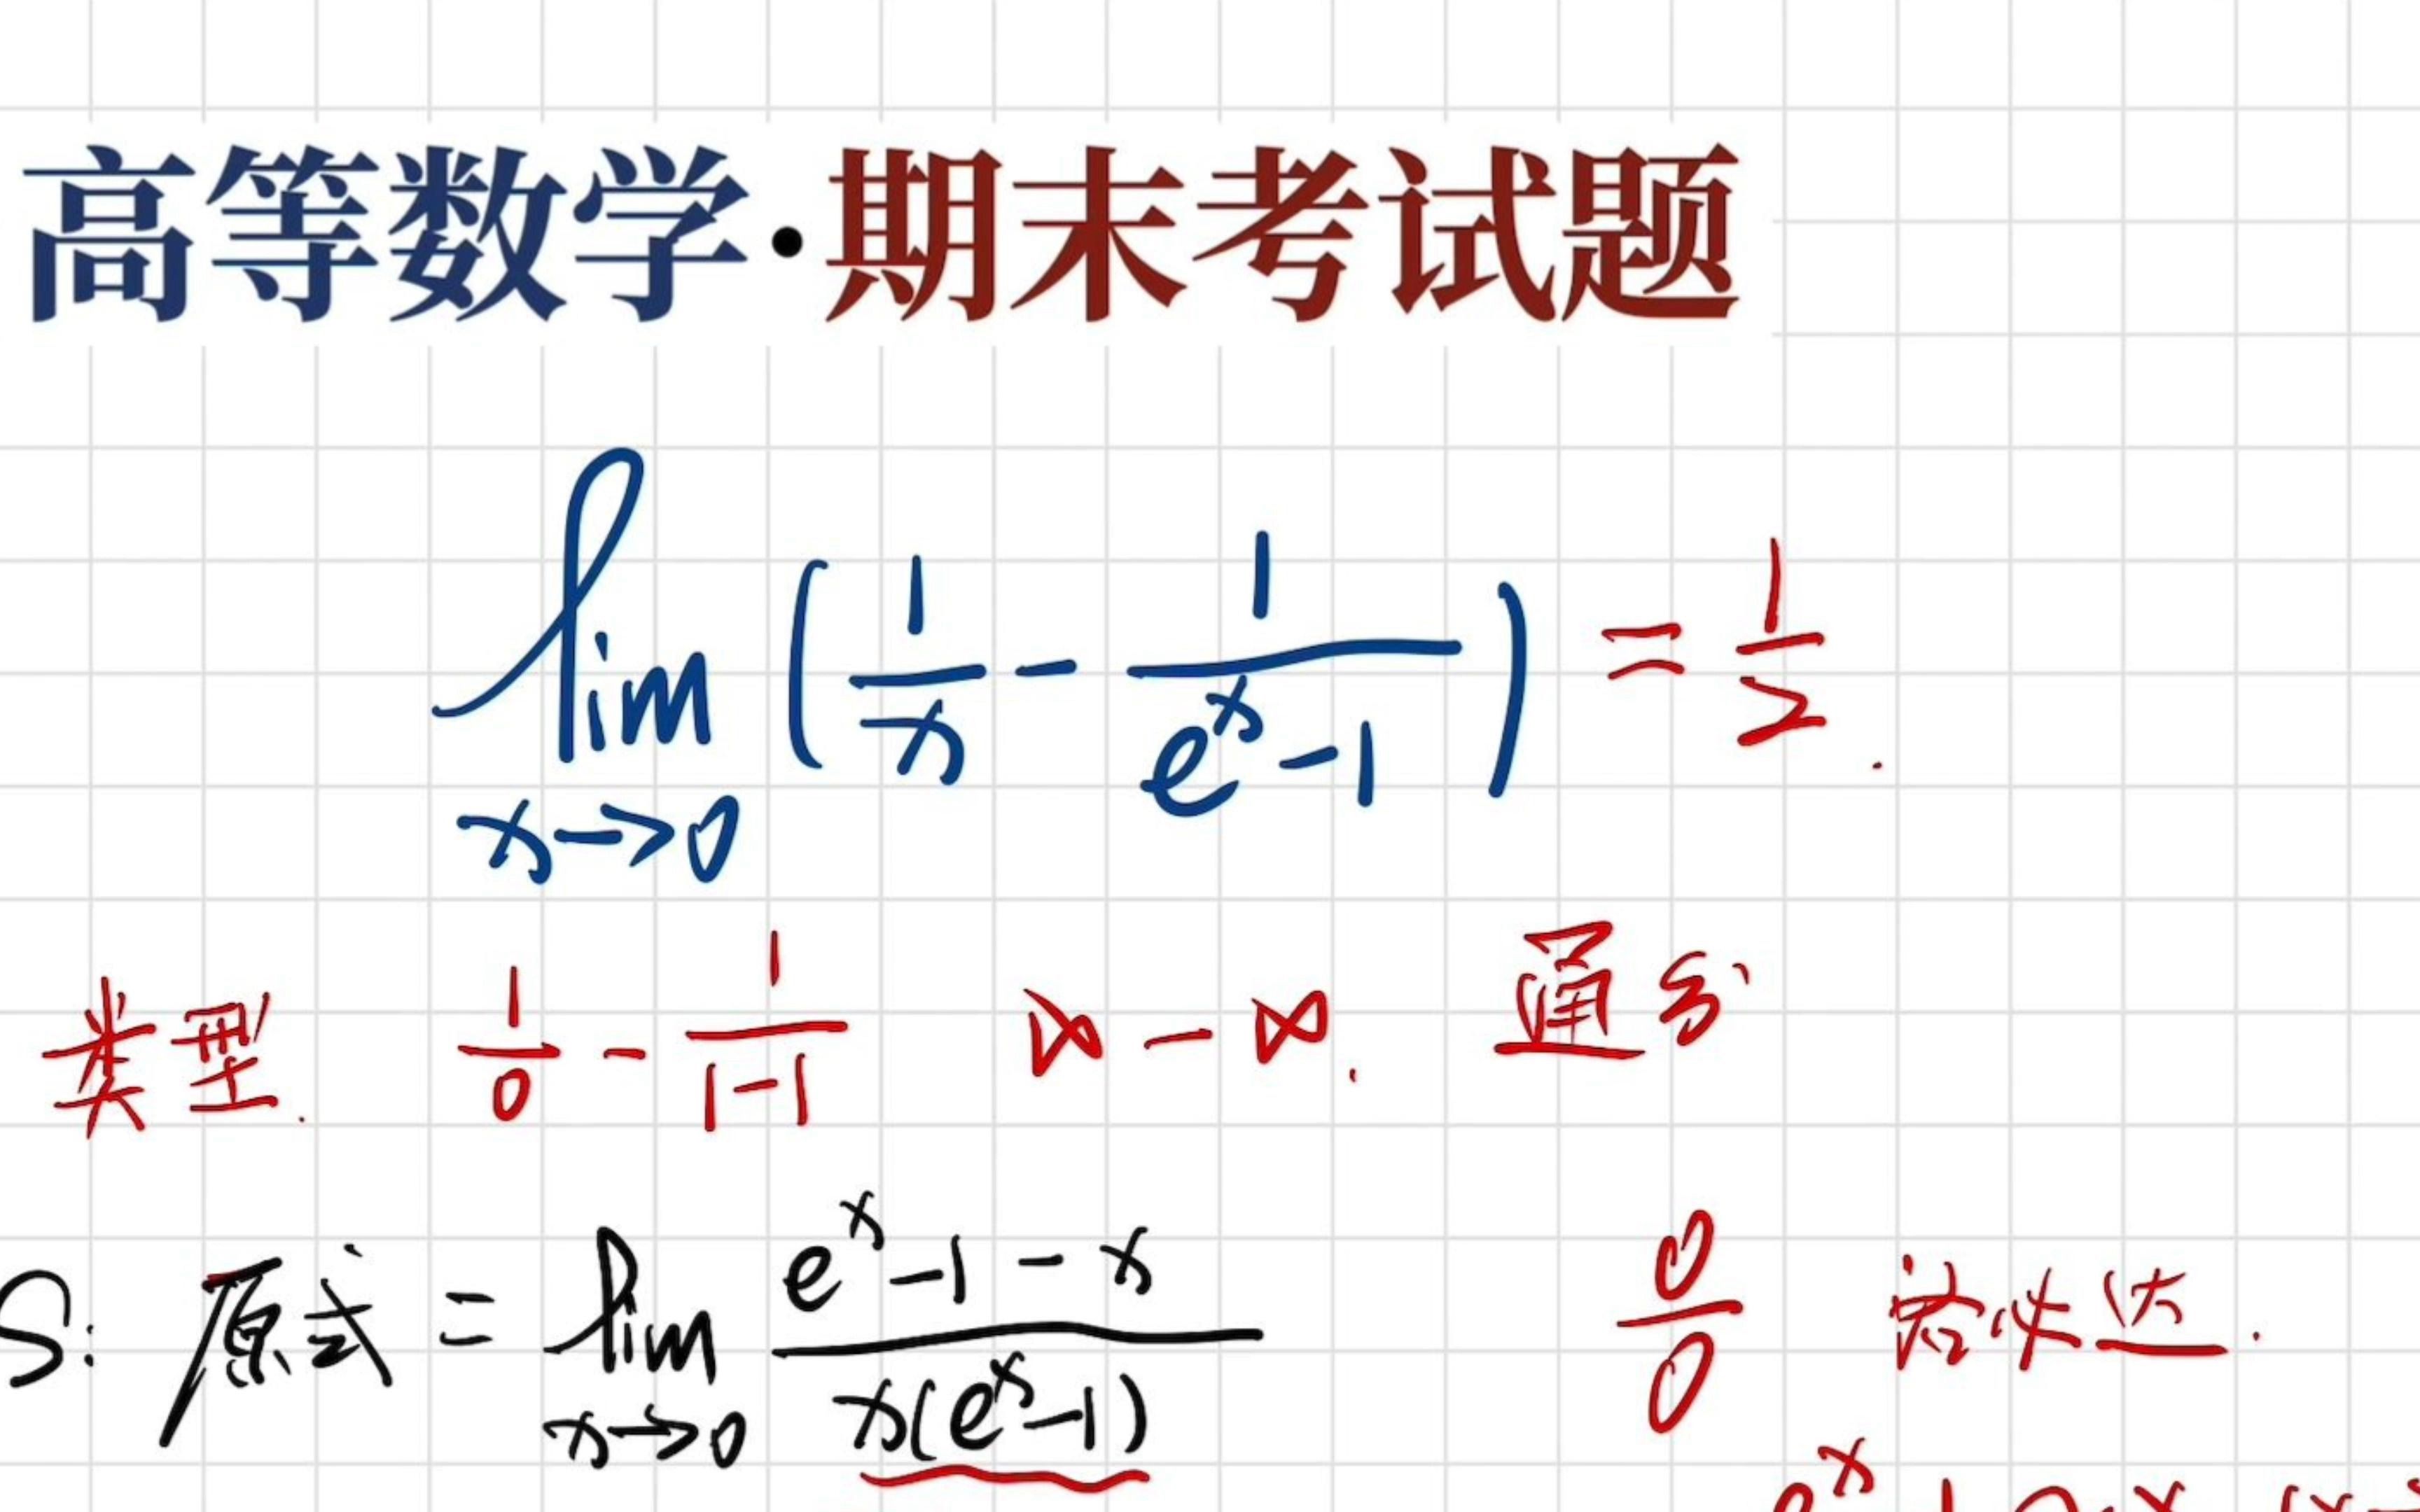 高等数学·期末考试题
lim x→0 (1/x - 1/(e^x-1)) = 1/2.
类型. 1/0 - 1/(1-1) ∞-∞. 通分
S: 原式 = lim x→0 (e^x-1-x)/(x(e^x-1)) 0/0 洛必达.